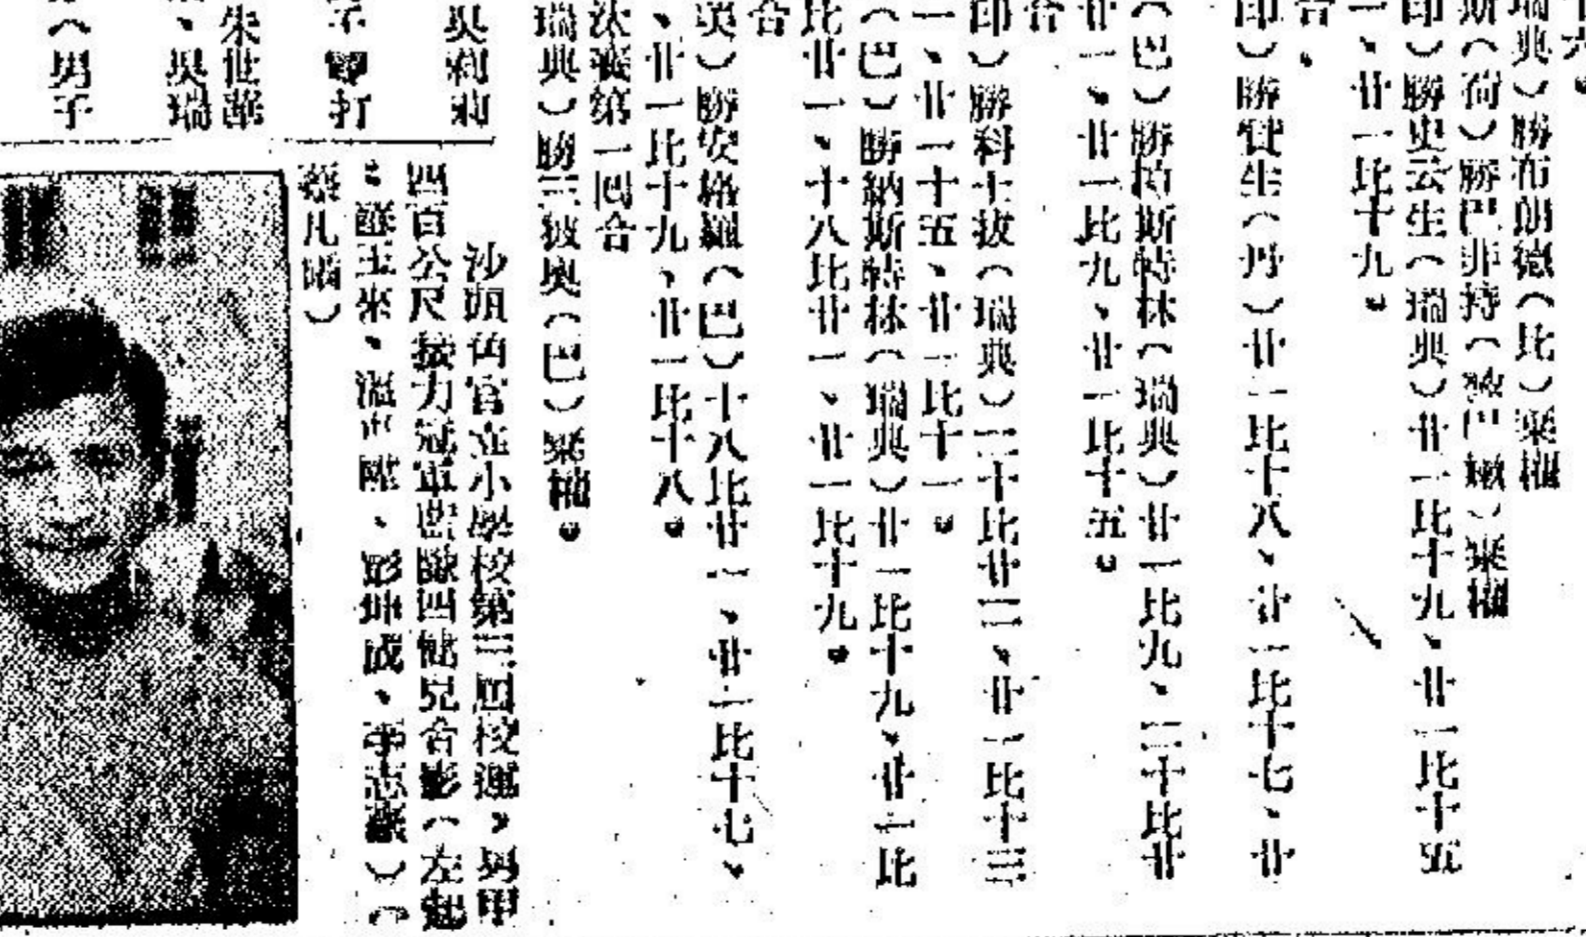 十六。
瑞典）勝布朗德（比）棄權
斯（荷）勝巴非持（波巴嫩）棄權
印）勝史云生（瑞典）廿一比十九、廿一比十五
一、廿一比十九。
合。
印）勝賀生（丹）廿一比十八、廿一比十七、廿
（巴）勝柏斯特林（瑞典）廿一比九、二十比廿
廿一、廿一比九、廿一比十五。
合
印）勝科士拔（瑞典）二十比廿二、廿一比十三
一、廿一十五、廿一比十一。
（巴）勝納斯特林（瑞典）廿一比十九、廿一比
比廿一、十八比廿一、廿一比十九。
合
英）勝安格羅（巴）十八比廿一、廿一比十七、
、廿一比十九、廿一比十八。
決賽第一回合
瑞典）勝三彼奥（巴）棄權。
吳莉莉
打
朱世華
、吳瑞
（男子
沙頭角官立小學校第三屆校運，男甲
四百公尺接力冠軍藍隊四健兒合影（左起
：蘇玉來、溫 、彭坤成、李志 ）（
蔡凡 ）